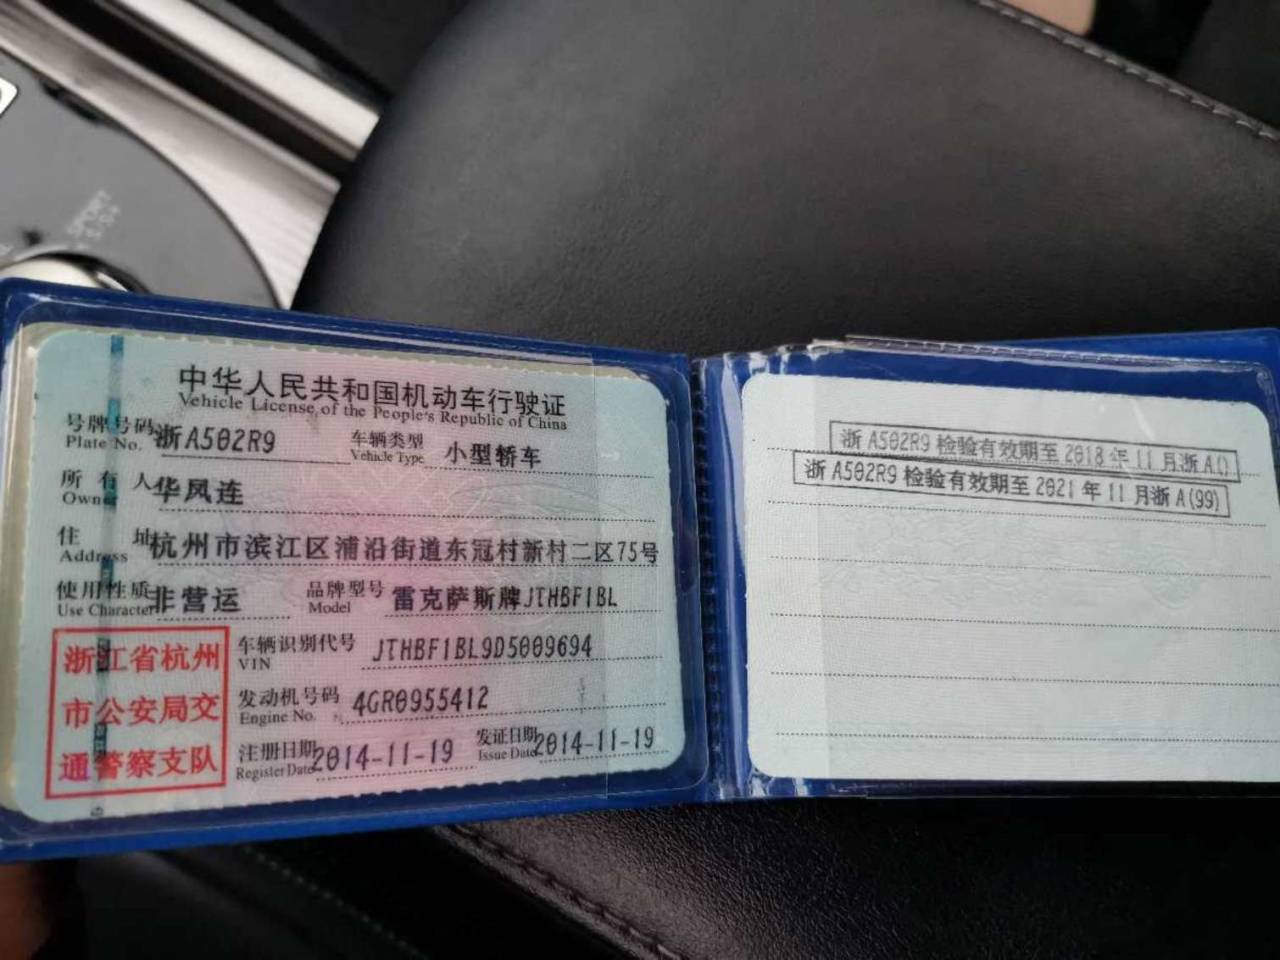 中华人民共和国机动车行驶证
Vehicle License of the People's Republic of China
号牌号码 浙A502R9 车辆类型 小型轿车
Plate No. Vehicle Type
所有人 华凤连
Owner
住址 杭州市滨江区浦沿街道东冠村新村二区75号
Address
使用性质 非营运 品牌型号 雷克萨斯牌JTHBF1BL
Use Character Model
车辆识别代号 JTHBF1BL9D5009694
VIN
发动机号码 4GR0955412
Engine No.
注册日期 2014-11-19 发证日期 2014-11-19
Register Date Issue Date
浙江省杭州
市公安局交
通警察支队
浙A502R9 检验有效期至 2018 年 11 月浙 A()
浙 A502R9 检验有效期至 2021 年 11 月浙 A(99)
SPORT